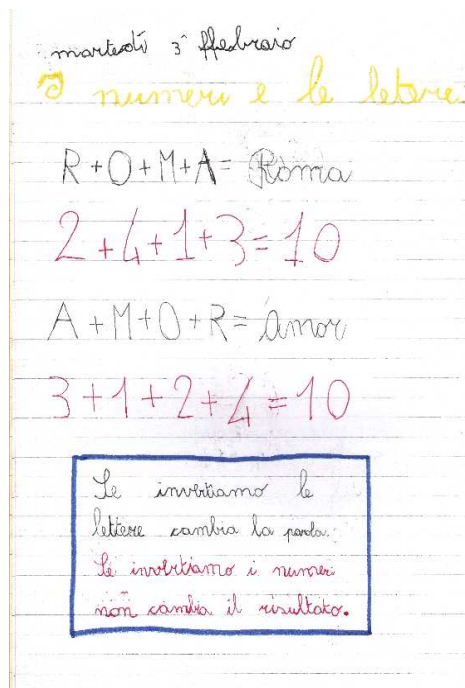 martedì 3 ffebraio
I numeri e le letere.
R+O+M+A= Roma
2+4+1+3=10
A+M+O+R= amor
3+1+2+4=10
Se invertiamo le
lettere cambia la parola.
Se invertiamo i numeri
non cambia il risultato.